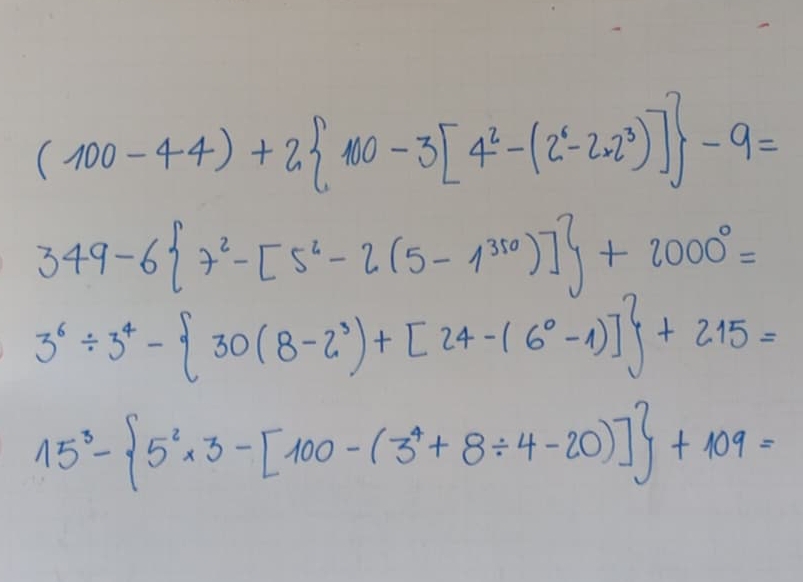 (100 - 44) + 2{ 100 - 3[ 4² - (2⁶ - 2×2³)]} - 9 =
349 - 6{ 7² - [ 5² - 2 (5 - 1³⁵⁰)]} + 2000⁰ =
3⁶ ÷ 3⁴ - { 30(8 - 2³) + [ 24 - ( 6⁰ - 1)]} + 215 =
15³ - {5² × 3 - [100 - (3⁴ + 8 ÷ 4 - 20)]} + 109 =